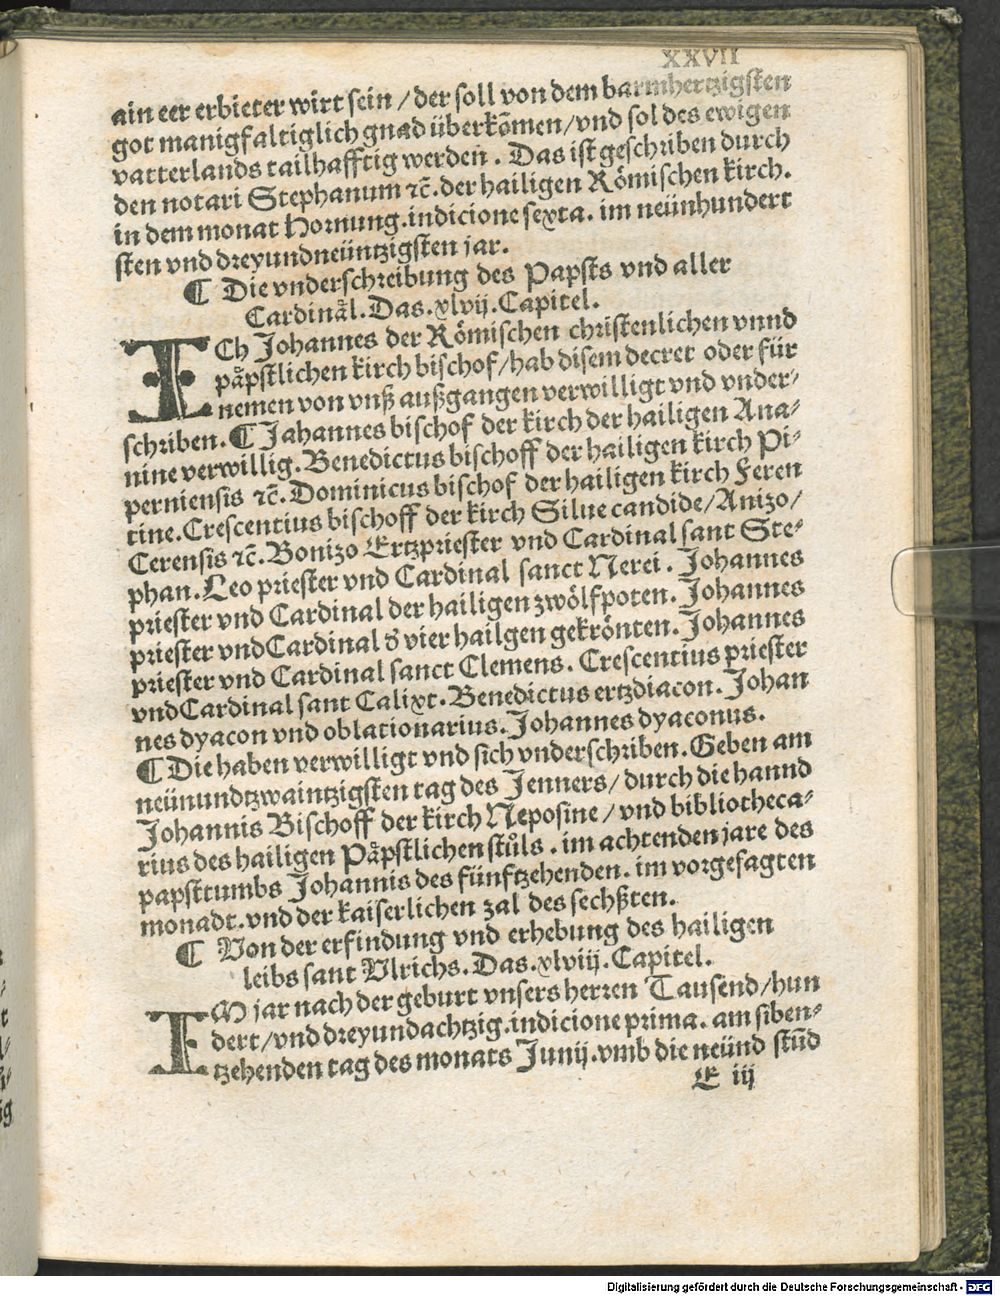 XXVII
ain eer erbieter wirt sein / der soll von dem barmhertzigsten
got manigfaltiglich gnad überkōmen / vnd sol des ewigen
vatterlands tailhafftig werden . Das ist geschriben durch
den notari Stephanum ⁊c̄. der hailigen Römischen kirch.
in dem monat Hornung. indicione sexta. im neünhundert
sten vnd dreyundneüntzigsten jar.
¶ Die vnderschreibung des Papsts vnd aller
Cardinål. Das .xlvij. Capitel.
ICh Johannes der Römischen christenlichen vnnd
påpstlichen kirch bischof / hab disem decret oder für
nemen von vnß außgangen verwilligt vnd vnder-
schriben. ¶ Jahannes bischof der kirch der hailigen Ana-
nine verwillig. Benedictus bischoff der hailigen kirch Pi-
perniensis ⁊c̄. Dominicus bischof der hailigen kirch Feren
tine. Crescentius bischoff der kirch Silue candide / Anizo /
Cerensis ⁊c̄. Bonizo Ertzpriester vnd Cardinal sant Ste-
phan. Leo priester vnd Cardinal sanct Nerei . Johannes
priester vnd Cardinal der hailigen zwölfpoten. Johannes
priester vnd Cardinal d̕ vier hailgen gekrönten. Johannes
priester vnd Cardinal sanct Clemens. Crescentius priester
vnd Cardinal sant Calixt. Benedictus ertzdiacon. Johan
nes dyacon vnd oblationarius. Johannes dyaconus.
¶ Die haben verwilligt vnd sich vnderschriben. Geben am
neünundtzwaintzigsten tag des Jenners / durch die hannd
Johannis Bischoff der kirch Neposine / vnd bibliotheca-
rius des hailigen Påpstlichen stůls . im achtenden jare des
papsttumbs Johannis des fünftzehenden. im vorgesagten
monadt. vnd der kaiserlichen zal des sechßten.
¶ Von der erfindung vnd erhebung des hailigen
leibs sant Vlrichs. Das .xlviij. Capitel.
IM jar nach der geburt vnsers herren Tausend / hun
dert / vnd dreyundachtzig. indicione prima. am siben-
tzehenden tag des monats Junij. vmb die neünd stūd
E iij
Digitalisierung gefördert durch die Deutsche Forschungsgemeinschaft - DFG